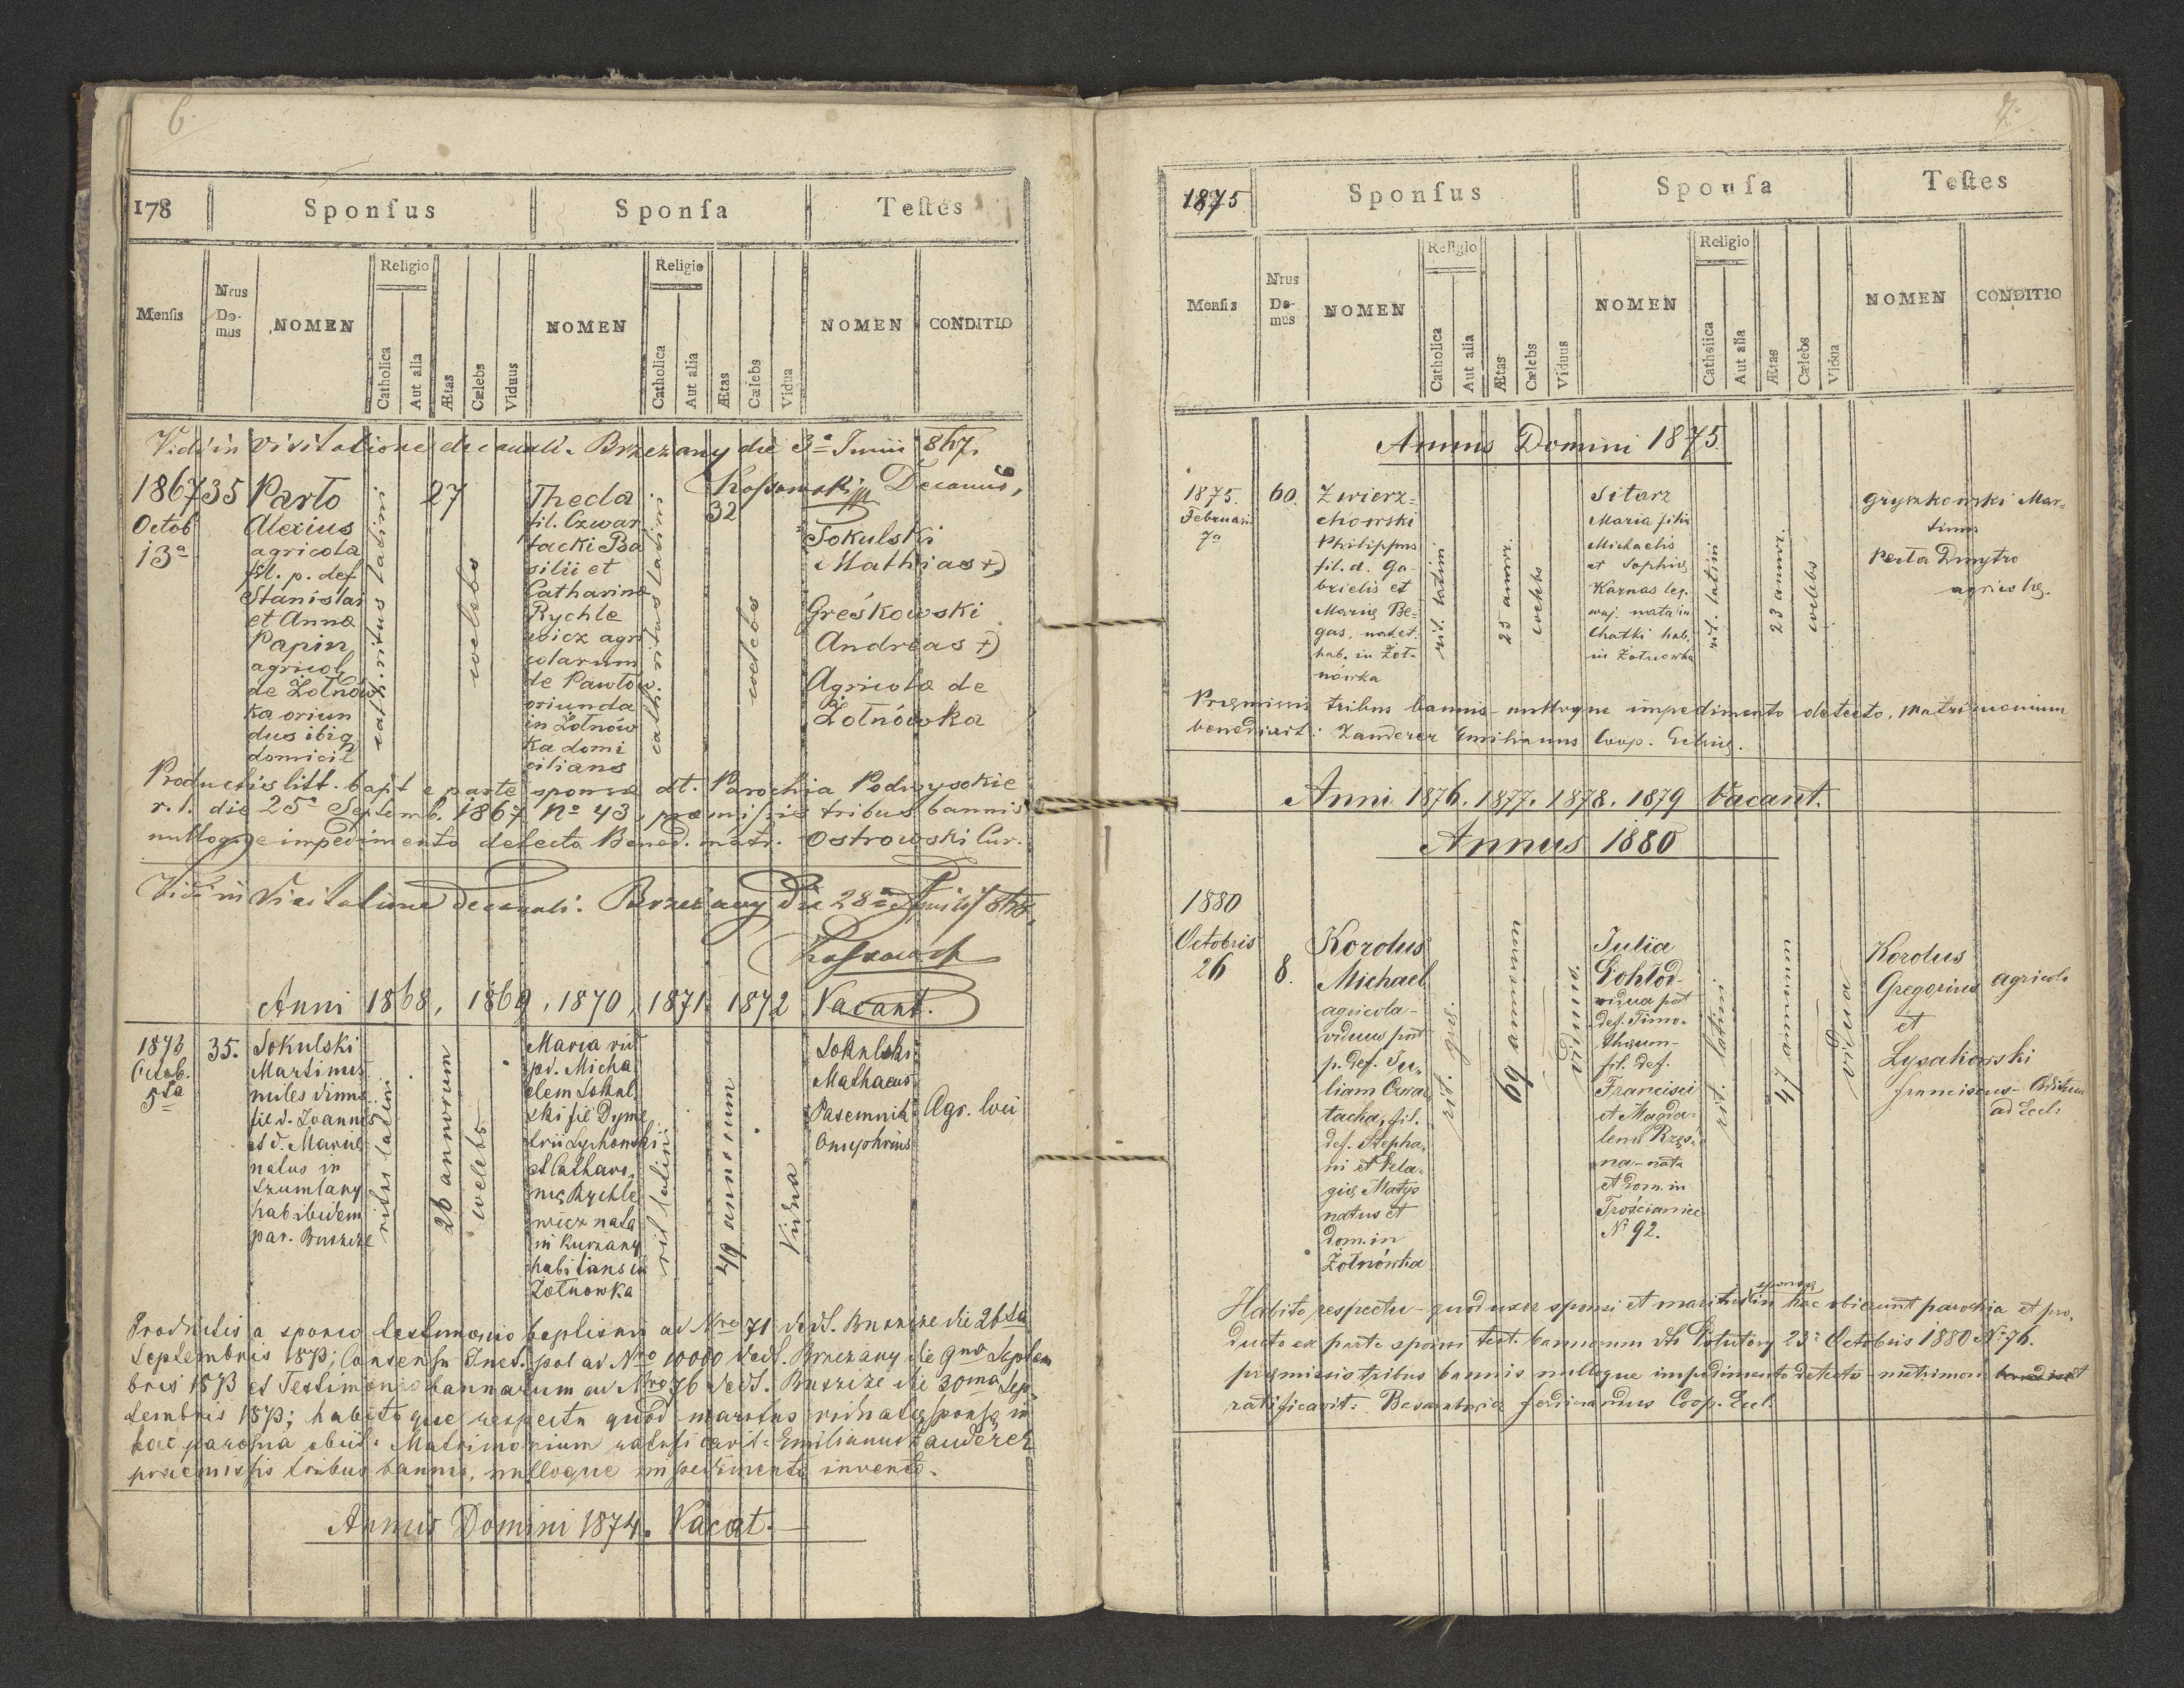 6.
178
Sponſus
Sponſa
Teſtes
Menſis
Nrus Domus
NOMEN
Religio
Catholica
Aut alia
Ætas
Cælebs
Viduus
NOMEN
Religio
Catholica
Aut alia
Ætas
Cælebs
Vidua
NOMEN
CONDITIO
Vidi in visitatione decanali. Brzezany die 3a Junii 867.
Decanus,
1867
Octob
13a
35
Parto
Alexius
agricola
fil. p. def
Stanislai
et Anna
Papin
agricol
de Żołnów
ka oriun
dus ibiq
domicil
cath. ritus latini
27
coelebs
Thecla
fil. Czwar
tacki Ba
silii et
Catharina
Rychle
wicz agri
colarum
de Pawłów
oriunda
in Żołnów
ka domi
cilians
cath. ritus latini
32
coelebs
Sokulski
Mathias +)
Greśkowski
Andreas +)
Agricola de
Żołnówka
Productis litt. bapt e parte sponsa dt. Parochia Podwysokie
r. l. die 25a Septemb. 1867 No 43, præmissis tribus bannis
nulloque impedimento detecto Bened. matr. Ostrowski Cur.
Vidi in Visitatione Decanali. Brzezany die 28a
Anni 1868, 1869, 1870, 1871, 1872 Vacant.
1873
Octob.
5ta
35.
Sokulski
Martinus
miles
fil d. Joannis
et d. Mariae
natus in
Szumlany
hab ibidem
par. Buszcze
ritus latini
26 annorum
coelebs
Maria vid
pd. Micha
elem Sokul
ski fil Dyme
trii
et Cathari
nę Rychle
wicz nata
in Kurzany
habitans in
Żołnowka
rit latini
49 annorum
Vidua
Sokulski
Mathaeus
Pasemnik
Onuphrius
Agr. loci
Productis a sponso testimonio baptismi ad Nro 71 dedt. Buszcze die 26ta
Septembris 1873; Consensu Incl. pol ad Nro 10000 dedt. Brzezany die 9na Septem
bris 1873 et Testimonio bannorum ad Nro 76 dedt. Buszcze die 30ma Sep
tembris 1873; habitoque respectu quod maritus viduatę sponsę in
hac parohia obiit. Matrimonium ratificavit Emilianus Zauderer
praemissis tribus bannis, nulloque impedimento invento.
Annus Domini 1874. Vacat.
7.
1875
Sponſus
Sponſa
Teſtes
Menſis
Nrus Domus
NOMEN
Religio
Catholica
Aut alia
Ætas
Cælebs
Viduus
NOMEN
Religio
Catholica
Aut alia
Ætas
Cælebs
Vidua
NOMEN
CONDITIO
Annus Domini 1875.
1875.
Februarii
7a
60.
Zwierz=
chowski
Philippus
fil. d. Ga-
brielis et
Marię Be=
gas, nat. et.
hab. in Żoł=
nówka
rit. latini
25 annor.
coelebs
Sitarz
Maria filia
Michaelis
et Sophię
Karnas leg.
nata in
Chatki hab.
in Żołnowka
rit. latini
23 annor.
coelebs
Gryszkowski Mar=
tinus
Perta Dmytro
agricolę.
Pręmissis tribus bannis nulloque impedimento detecto, matrimonium
benedixit: Zauderer Emilianus Coop. Eccl.
Anni 1876. 1877. 1878. 1879 Vacant.
Annus 1880
1880
Octobris
26
8.
Korolus
Michael
agricola-
viduus post
p. def. Ju-
liam Czwar
tacka, fil.
def. Stepha-
ni et Pela-
gię Matys
natus et
dom. in
Żołnówka
rit. grę.
69 annorum
viduus.
Julia
vidua post
def. Timo-
theum-
fil. def.
Francisci
et Magda-
lenę
na- nata
et dom. in
Trościaniec
Nr 92.
rit. latini
47 annorum
vidua
Korolus
Gregorius agricola
et
Łysakowski
Franciscus
ad Eccl.
Habito respectu- quod uxor sponsi et maritus sponsę in hac obierunt parochia et pro-
ducto ex parte sponsi test. bannorum dt. Potutory 23a Octobris 1880 No 76.
pręmissis tribus bannis nulloque impedimento detecto- matrimon. benedixit
ratificavit: Ferdinandus Coop. Eccl.